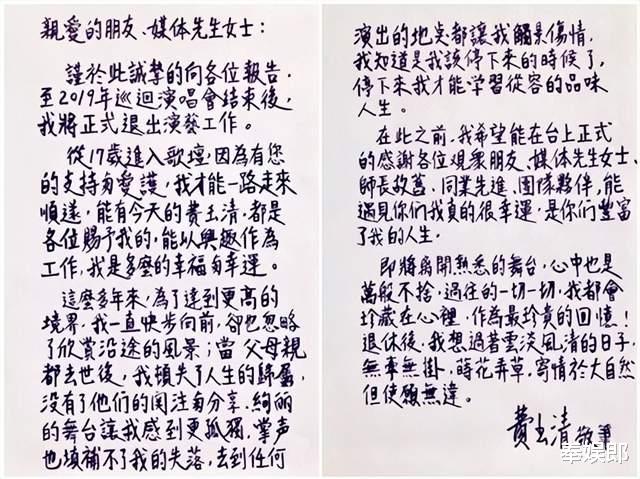 親愛的朋友、媒体先生女士：
謹於此誠摯的向各位報告，
至2019年巡迴演唱會結束後，
我將正式退出演藝工作。
從17歲進入歌壇，因為有您
的支持與愛護，我才能一路走來
順遂，能有今天的費玉清，都是
各位賜予我的，能以興趣作為
工作，我是多麼的幸福與幸運。
這麼多年來，為了達到更高的
境界，我一直快步向前，卻也忽略
了欣賞沿途的風景；當父母親
都去世後，我頓失了人生的歸屬，
沒有了他們的関注與分享，絢麗
的舞台讓我感到更孤獨，掌声
也填補不了我的失落，去到任何
演出的地点都讓我觸景傷情，
我知道是我該停下來的時候了，
停下來我才能学習從容的品味
人生。
在此之前，我希望能在台上正式
的感謝各位观眾朋友、媒体先生女士、
師長故舊、同業先進、團隊夥伴，能
遇見你們我真的很幸運，是你們豐富
了我的人生。
即將離開熟悉的舞台，心中也是
萬般不捨，過往的一切一切，我都會
珍藏在心裡，作為最珍貴的回憶！
退休後，我想過著雲淡風清的日子，
無牽無掛，蒔花弄草，寄情於大自然
但使願無違。
費玉清 敬筆
奉娱郎